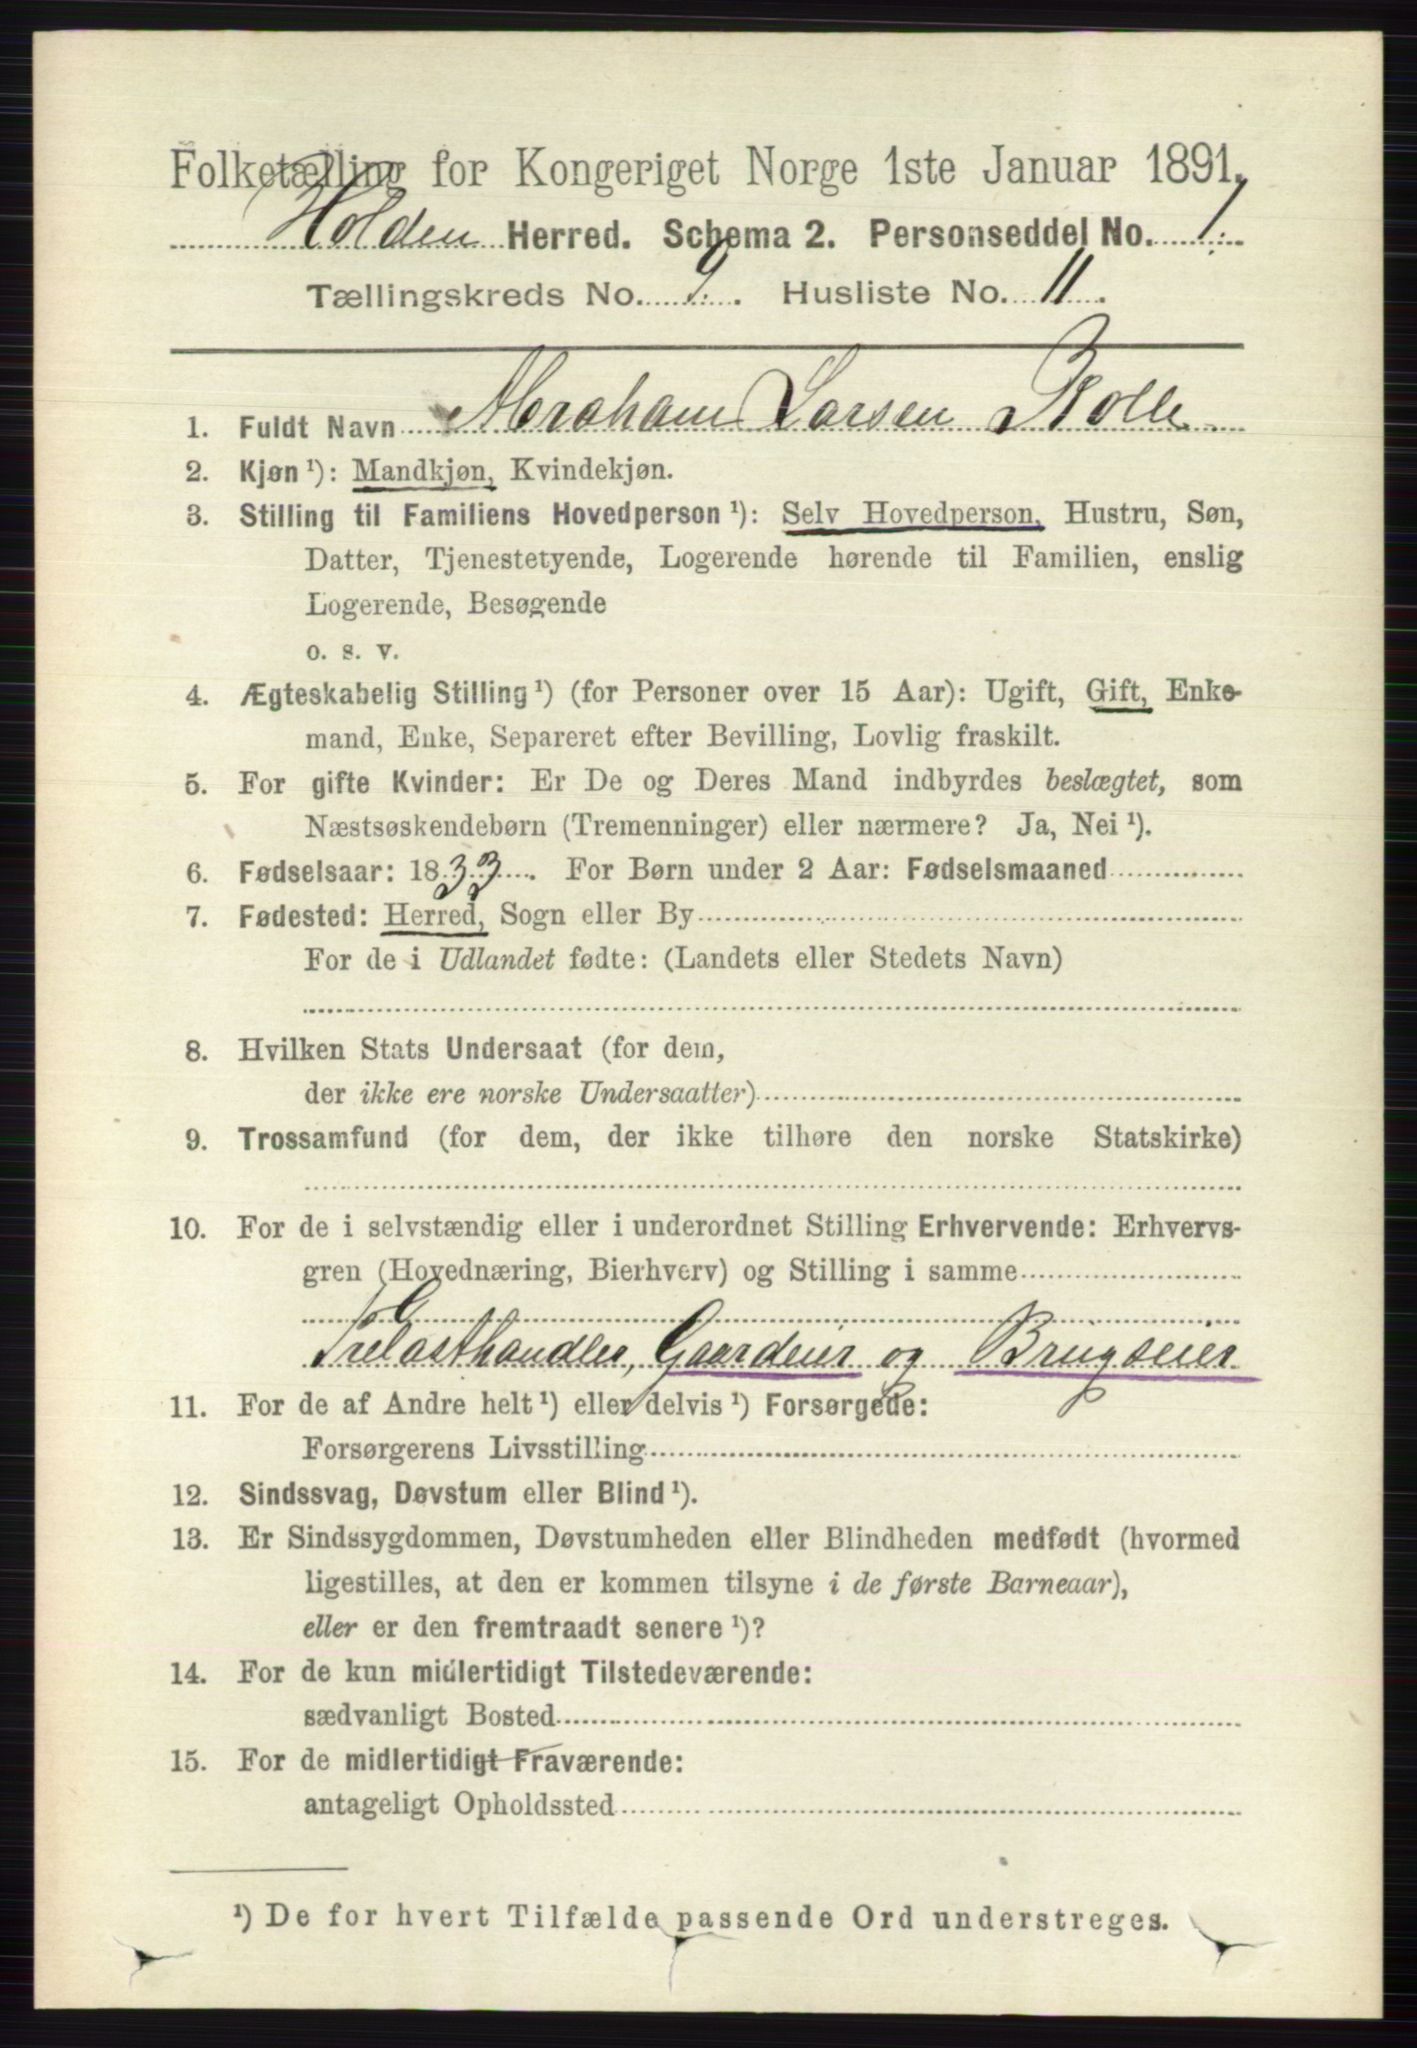 Folketælling for Kongeriget Norge 1ste Januar 1891.
Holden Herred. Schema 2. Personseddel No. 1.
Tællingskreds No. 9. Husliste No. 11.
1. Fuldt Navn Abraham Larsen Rolle.
2. Kjøn¹): Mandkjøn, Kvindekjøn.
3. Stilling til Familiens Hovedperson¹): Selv Hovedperson, Hustru, Søn,
Datter, Tjenestetyende, Logerende hørende til Familien, enslig
Logerende, Besøgende
o. s. v.
4. Ægteskabelig Stilling¹) (for Personer over 15 Aar): Ugift, Gift, Enke-
mand, Enke, Separeret efter Bevilling, Lovlig fraskilt.
5. For gifte Kvinder: Er De og Deres Mand indbyrdes beslægtet, som
Næstsøskendebørn (Tremenninger) eller nærmere? Ja, Nei¹).
6. Fødselsaar: 1833. For Børn under 2 Aar: Fødselsmaaned
7. Fødested: Herred, Sogn eller By
For de i Udlandet fødte: (Landets eller Stedets Navn)
8. Hvilken Stats Undersaat (for dem,
der ikke ere norske Undersaatter)
9. Trossamfund (for dem, der ikke tilhøre den norske Statskirke)
10. For de i selvstændig eller i underordnet Stilling Erhvervende: Erhvervs-
gren (Hovednæring, Bierhverv) og Stilling i samme
Trelasthandler, Gaardeier og Brugseier
11. For de af Andre helt¹) eller delvis¹) Forsørgede:
Forsørgerens Livsstilling
12. Sindssvag, Døvstum eller Blind¹).
13. Er Sindssygdommen, Døvstumheden eller Blindheden medfødt (hvormed
ligestilles, at den er kommen tilsyne i de første Barneaar),
eller er den fremtraadt senere¹)?
14. For de kun midlertidigt Tilstedeværende:
sædvanligt Bosted
15. For de midlertidigt Fraværende:
antageligt Opholdssted
¹) De for hvert Tilfælde passende Ord understreges.